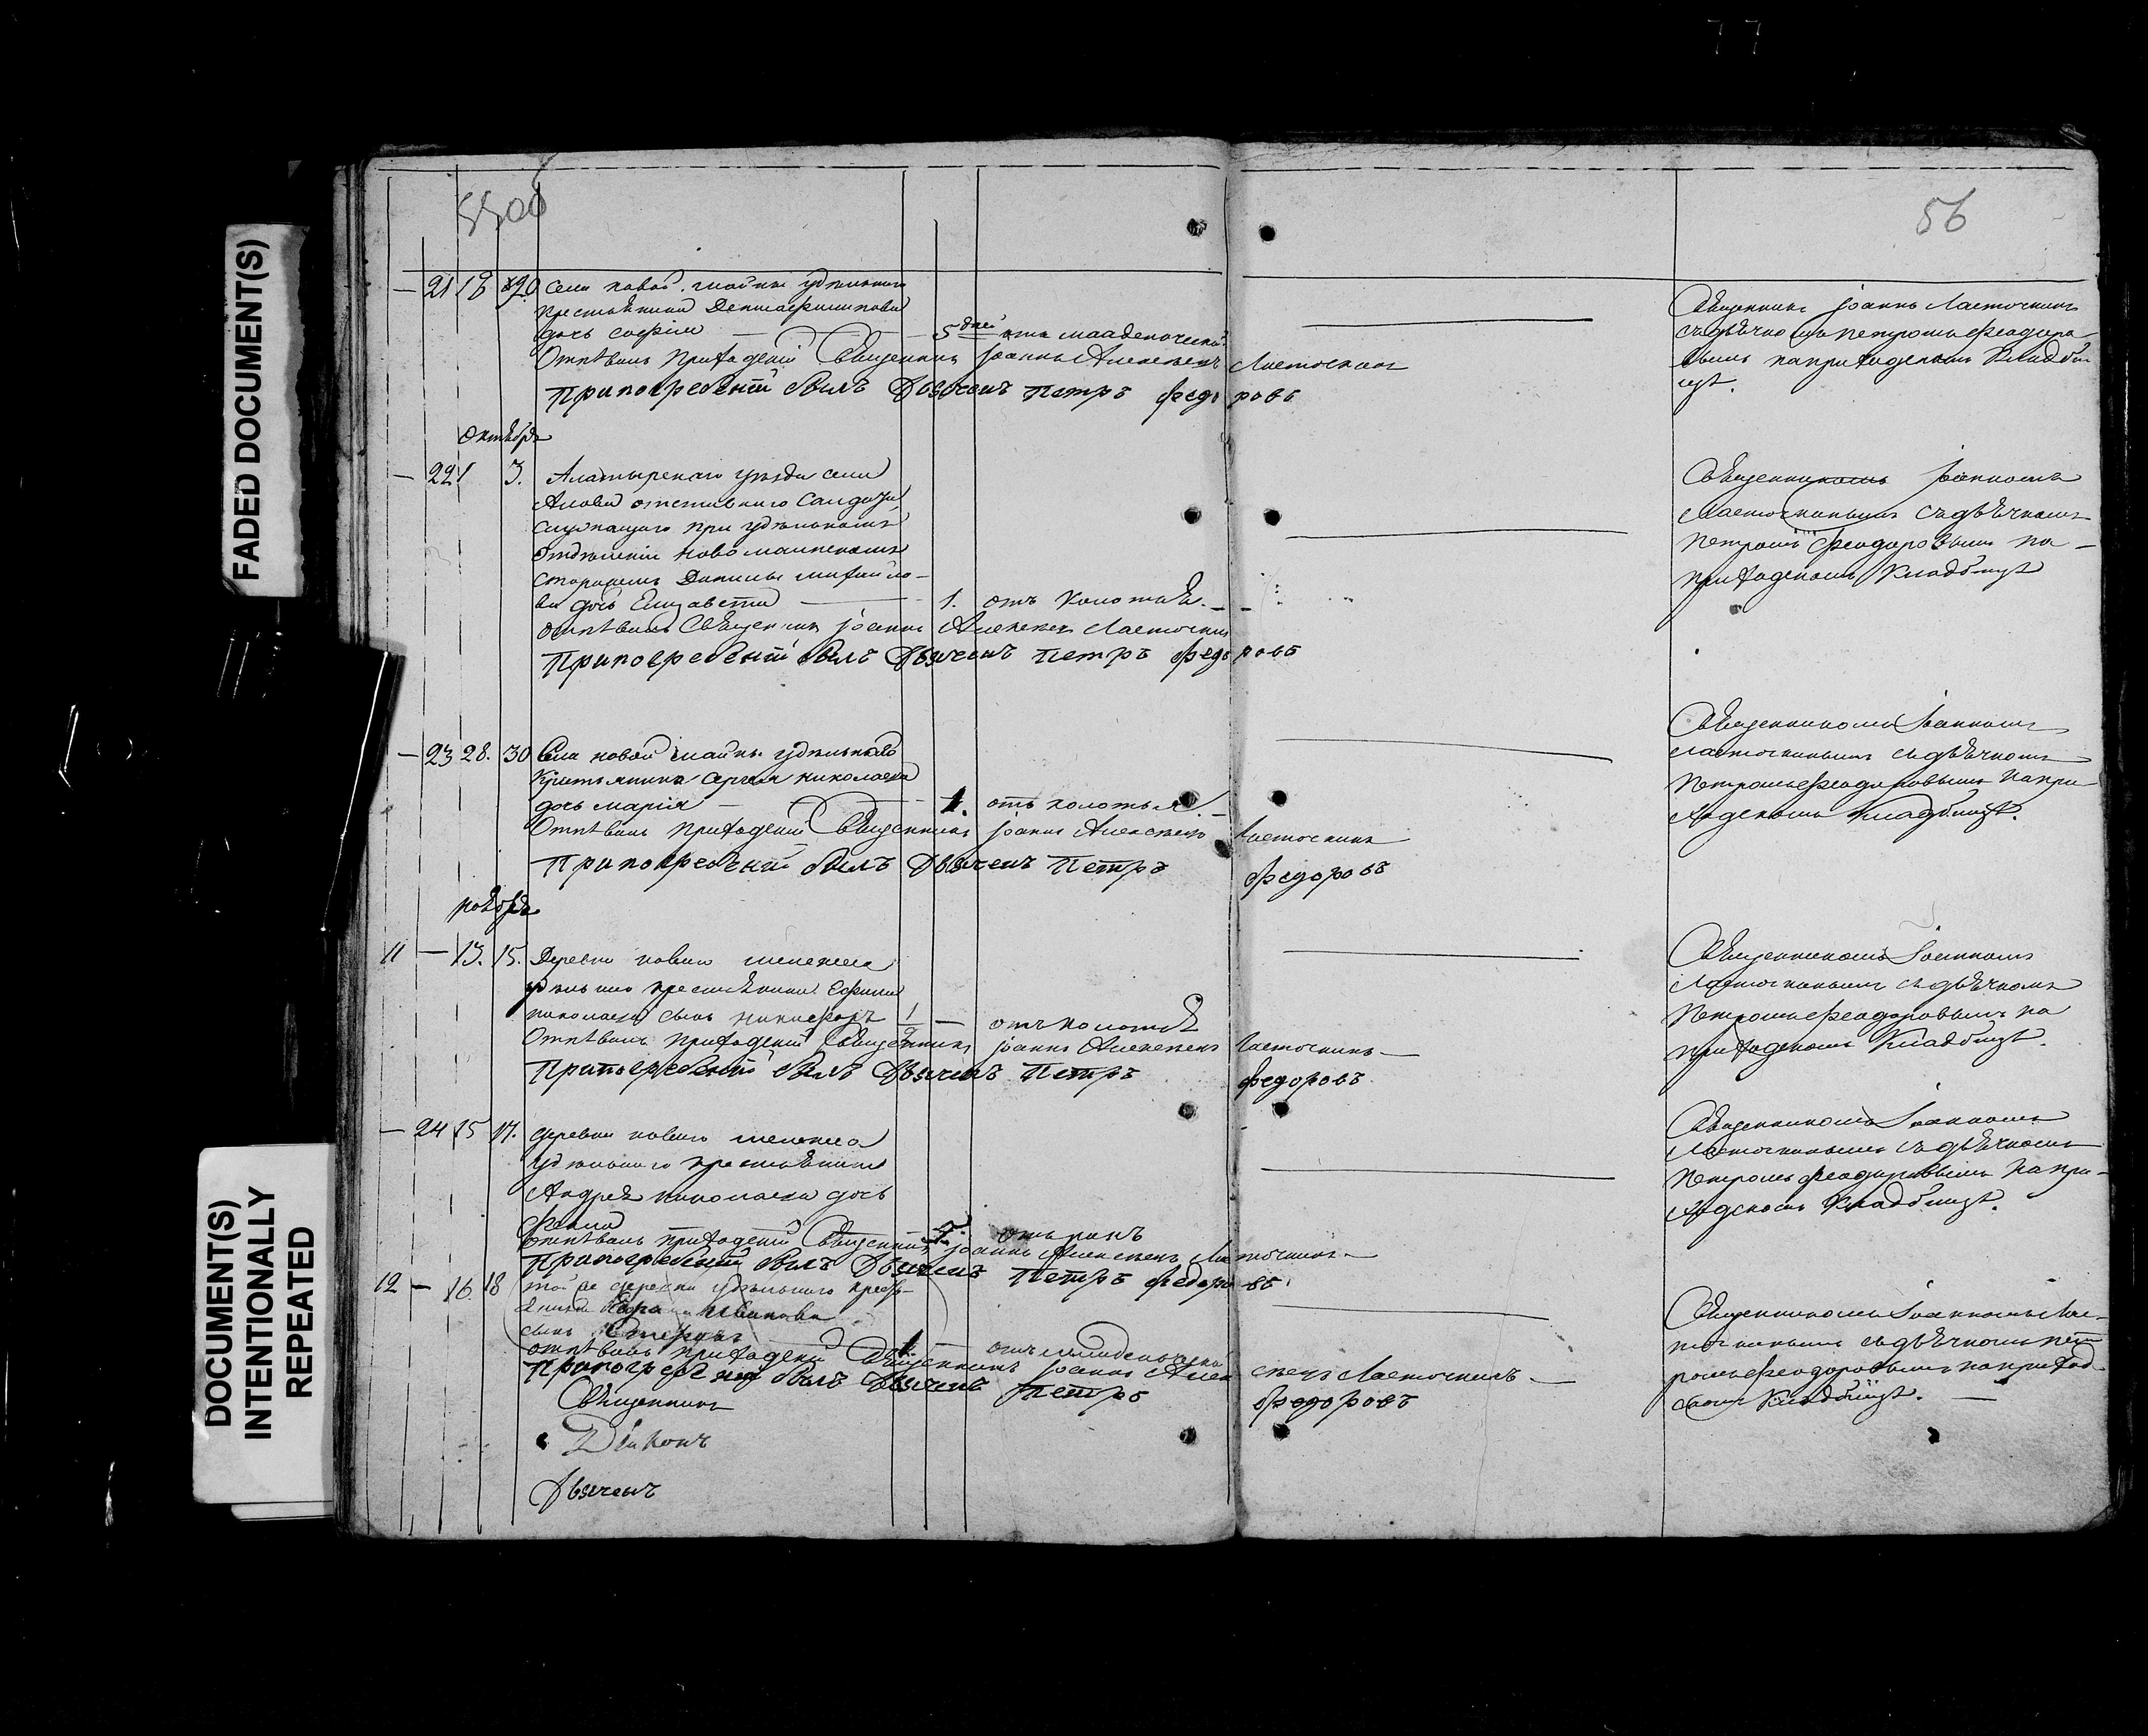 77
56
FADED DOCUMENT(S)
DOCUMENT(S)
INTENTIONALLY
REPEATED
— 21 18 20 Села новой майны удѣльнаго
крестьянина
дочь софія — 5 дней отъ младенческой
Отпѣвалъ приходскій Священникъ Іоаннъ Алексѣевъ Ласточкинъ
Припогребеніи былъ Дьячекъ Петръ Федоровъ
Священникъ Іоаннъ Ласточкинъ
съ дьячкомъ Петромъ Феодоро-
вымъ на приходскомъ кладби-
щѣ.
Октябрь
— 22 1 3. Алатырскаго уѣзда села
отставного Солдата,
служащаго при удѣльномъ
отдѣленіи новомаинскомъ
сторожемъ Данилы михайло-
ва дочь Елизавета — 1. отъ колотья. —
отпѣвалъ Священникъ Іоаннъ Алексѣевъ Ласточкинъ
Припогребеніи былъ Дьячекъ Петръ Федоровъ
Священникомъ Іоанномъ
Ласточкинымъ съ дьячкомъ
Петромъ Феодоровымъ на
приходскомъ кладбищѣ
— 23 28. 30 Села новой майны удѣльнаго
крестьянина Сергея николаева
дочь марія — 1. отъ колотья. —
Отпѣвалъ приходскій Священникъ Іоаннъ Алексѣевъ Ласточкинъ
Припогребеніи былъ Дьячекъ Петръ Федоровъ
Священникомъ Іоанномъ
Ласточкинымъ съ дьячкомъ
Петромъ Феодоровымъ на при-
ходскомъ кладбищѣ.
ноябрь
11 — 13. 15. Деревни новаго
крестьянина Ефима
николаева сынъ никифоръ — отъ колотья
Отпѣвалъ приходскій Священникъ Іоаннъ Алексѣевъ Ласточкинъ —
Припогребеніи былъ Дьячекъ Петръ Федоровъ
Священникомъ Іоанномъ
Ласточкинымъ съ дьячкомъ
Петромъ Феодоровымъ на
приходскомъ кладбищѣ.
— 24 15 17. деревни новаго
удѣльнаго крестьянина
Андрея николаева дочь
отпѣвалъ приходскій Священникъ Іоаннъ Алексѣевъ Ласточкинъ —
Припогребеніи былъ Дьячекъ Петръ Федоровъ
Священникомъ Іоанномъ
Ласточкинымъ съ дьячкомъ
Петромъ Феодоровымъ на при-
ходскомъ кладбищѣ.
12 — 16. 18 той же деревни удѣльнаго кресть-
янина Иванова
сынъ 1. отъ младенческой
отпѣвалъ приходскій Священникъ Іоаннъ Алексѣевъ Ласточкинъ —
Припогребеніи былъ Дьячекъ Петръ Федоровъ
Священникомъ Іоанномъ Лас-
точкинымъ съ дьячкомъ Пет-
ромъ Феодоровымъ на приход-
скомъ кладбищѣ. —
Священникъ
Діаконъ
Дьячекъ